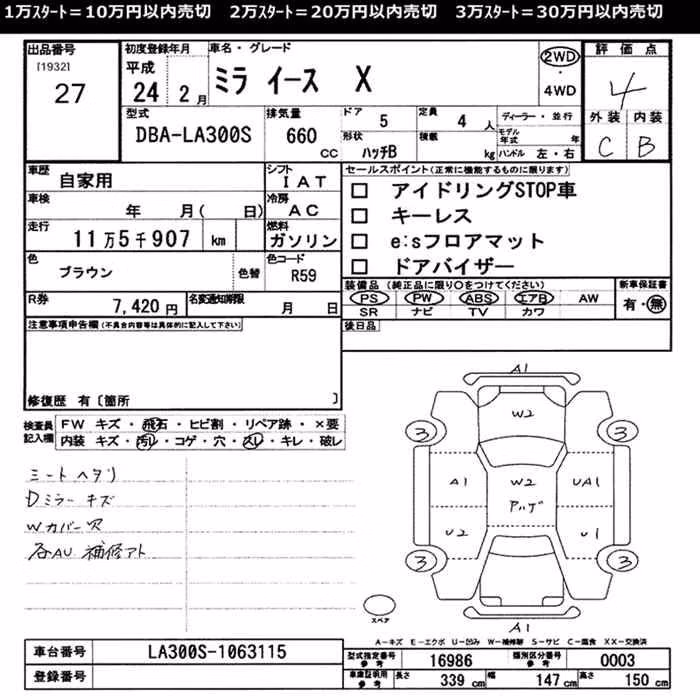 1万ｽﾀｰﾄ＝10万円以内売切 2万ｽﾀｰﾄ＝20万円以内売切 3万ｽﾀｰﾄ＝30万円以内売切
出品番号 初度登録年月 車名・グレード 評価点
[1932] 平成 ミラ イース X 2WD
27 24 2月 ・ 4WD 4
型式 排気量 ドア 5 定員 4人 ディーラー・並行 外装 内装
DBA-LA300S 660 CC 形状 ハッチB 積載 kg モデル年式 年 C B
ハンドル 左・右
車歴 自家用 シフト IAT セールスポイント(正常に機能するものに限ります)
車検 年 月( 日) 冷房 AC □ アイドリングSTOP車
走行 11万5千907 km 燃料 ガソリン □ キーレス
色 ブラウン 色替 色コード R59 □ e:sフロアマット
□ ドアバイザー
R券 7,420円 名変通知期限 月 日 装備品 (純正品に限り○をつけてください) 新車保証書
PS PW ABS エアB AW 有・無
SR ナビ TV カワ
注意事項申告欄(不具合内容等は具体的に記入して下さい) 後日品
修復歴 有〔箇所 〕
検査員記入欄 FW キズ・飛石・ヒビ割・リペア跡・×要
内装 キズ・汚レ・コゲ・穴・スレ・キレ・破レ
シートヘタリ
Dミラーキズ
Wカバー欠
各AU 補修アト
A1
W2
3 3
A1 W2 UA1
アハゲ
U2 U1
3 3
スペア
A1
A－キズ E－エクボ U－凹み W－補修跡 S－サビ C－腐食 XX－交換済
車台番号 LA300S-1063115 型式指定番号 参考 16986 類別区分番号 参考 0003
登録番号 車庫証明用 参考 長さ 339 cm 幅 147 cm 高さ 150 cm